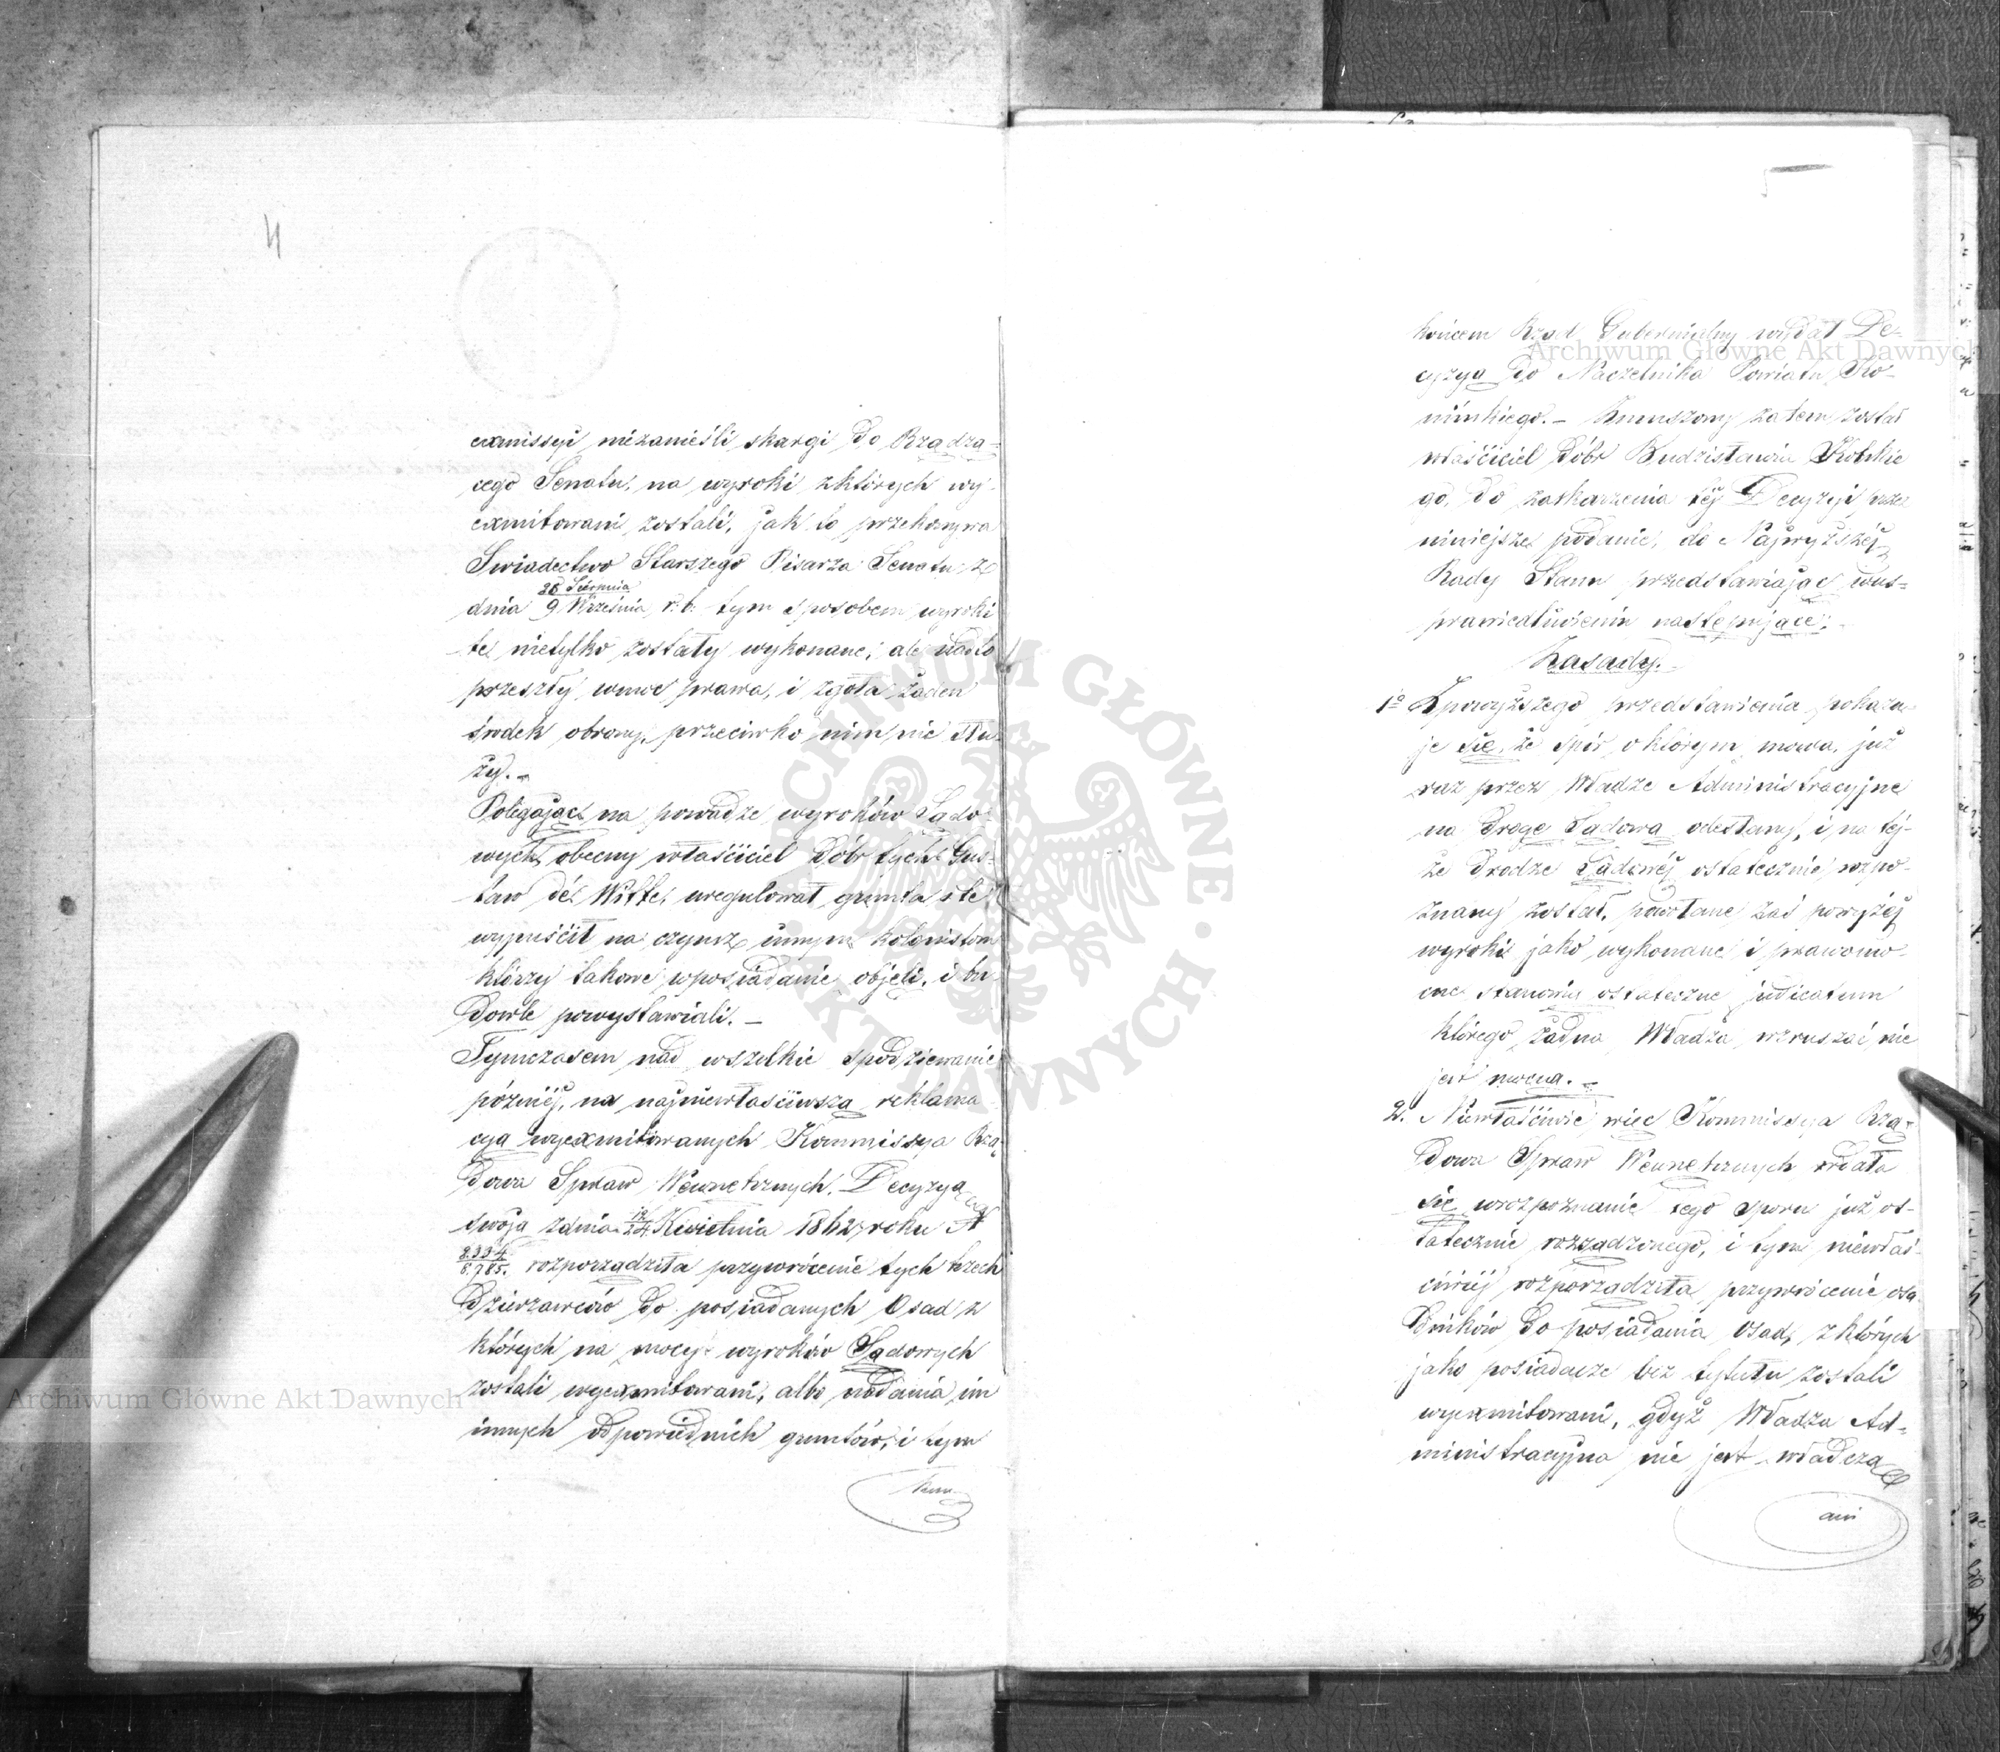 4
exmissyi niezanieśli skargi do Rządzą=
cego Senatu, na wyroki z których wy=
exmitowani zostali, jak to przekonywa
Swiadectwo Starszego Pisarza Senatu z
dnia 28 Sierpnia / 9 Września r. b. tym sposobem wyroki
te nietylko zostały wykonane, ale nadto
przeszły wmoc prawa, i zgoła żaden
środek obrony, przeciwko nim nie słu
ży. -
Polegając na powadze wyroków Sądo=
wych, obecny właściciel Dóbr tych Gus=
taw de Witte, uregulował grunta i te
wypuścił na czynsz innym kolonistom
którzy takowe wposiadanie objęli, i bu=
dowle powystawiali. -
Tymczasem nad wszelkie spodziewanie
później, na najniewłaściwszą reklama
cyą wyexmitowanych Kommissya Rzą=
dowa Spraw Wewnętrznych, Decyzyą
swoją zdnia 12/24 Kwietnia 1862 roku N
8.334/8.785. rozporządziła przywrócenie tych trzech
Dzierżawców do posiadanych Osad z
których na mocy wyroków Sądowych
zostali wyexmitowani, albo nadania im
innych odpowiednich gruntów, i tym
końcem Rząd Gubernialny wydał De=
cyzyą do Naczelnika Powiatu Ko=
nińskiego. - Zmuszony zatem został
właściciel Dóbr Budzisławia Kolskie
go, do zaskarżenia tej Decyzyi przez
niniejsze podanie, do Najwyższej
Rady Stanu przedstawiając wus=
prawiedliwieniu następujące:
Zasady. -
1º Zpowyższego przedstawienia pokazu
je się, że spór o którym mowa, już
raz przez Władze Administracyjne
na drogę Sądową odesłany, i na tej=
że drodze Sądowej ostatecznie rozpo=
znany został, powołane zaś powyżej
wyroki jako wykonane i prawomo=
cne stanowią ostateczne judicatum
którego żadna Władza wzruszać nie
jest mocną. -
2. Niewłaściwie więc Kommissya Rzą=
dowa Spraw Wewnętrznych wdała
się wrozpoznanie tego sporu już os=
tatecznie rozsądzonego, i tym niewłaś=
ciwiej rozporządziła przywrócenie osa
dników do posiadania osad, z których
jako posiadacze bez tytułu zostali
wyexmitowani, gdyż Władza Ad=
ministracyjna nie jest władzą
ani
Archiwum Główne Akt Dawnych
Archiwum Główne Akt Dawnych
ARCHIWUM GŁÓWNE AKT DAWNYCH